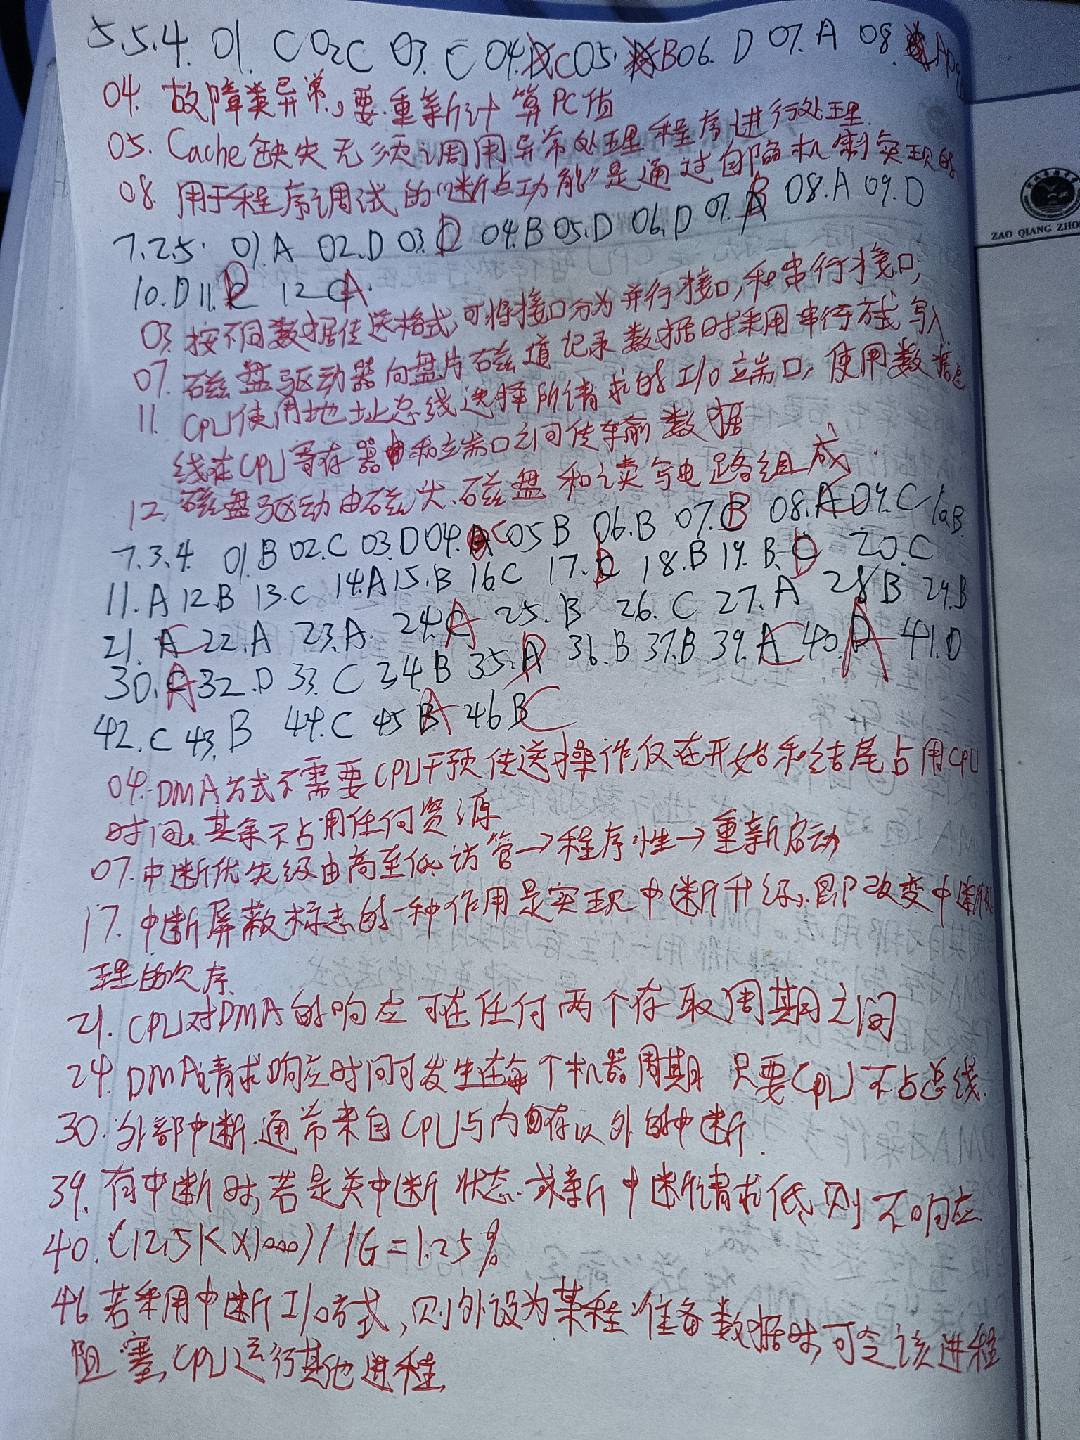 5.5.4. 01. C 02C 03. C 04. C 05. B 06. D 07. A 08. A
04. 故障类异常,要重新计算PC值
05. Cache缺失无须调用异常处理程序进行处理
08. 用于程序调试的"断点功能"是通过自陷机制实现的
7.2.5. 01. A 02. D 03. D 04. B 05. D 06. D 07. B 08. A 09. D
10. D 11. D 12 A.
03. 按不同数据传送格式,可将接口分为并行接口,和串行接口,
07. 磁盘驱动器向盘片磁道记录数据时采用串行方式写入
11. CPU使用地址总线选择所请求的I/O端口,使用数据总
线在CPU寄存器和端口之间传输数据
12. 磁盘驱动由磁头.磁盘和读写电路组成.
7.3.4. 01. B 02. C 03. D 04. C 05 B 06. B 07. B 08. C 09. C 10. B
11. A 12 B 13. C 14. A 15. B 16 C 17. 18. B 19. B. D 20. C
21. C 22. A 23. A. 24. A 25. B 26. C 27. A 28 B 29. B
30. A 32. D 33. C 34. B 35. D 36. B 37. B 39. C 40. A 41. D
42. C 43. B 44. C 45 A 46 C
04. DMA方式不需要CPU干预传送操作,仅在开始和结尾占用CPU
时间,其余不占用任何资源
07. 中断优先级由高至低访管→程序性→重新启动
17. 中断屏蔽标志的一种作用是实现中断升级,即改变中断处
理的次序
21. CPU对DMA的响应可在任何两个存取周期之间
24. DMA请求响应时间可发生在每个机器周期 只要CPU不占总线.
30. 外部中断通常来自CPU与内存以外的中断.
39. 有中断时,若是关中断状态.或新中断请求低,则不响应
40. (12.5K×1000)/1G=1.25%
46 若采用中断I/O方式,则外设为某程准备数据时,可令该进程
阻塞,CPU运行其他进程.
ZAO QIANG ZHO